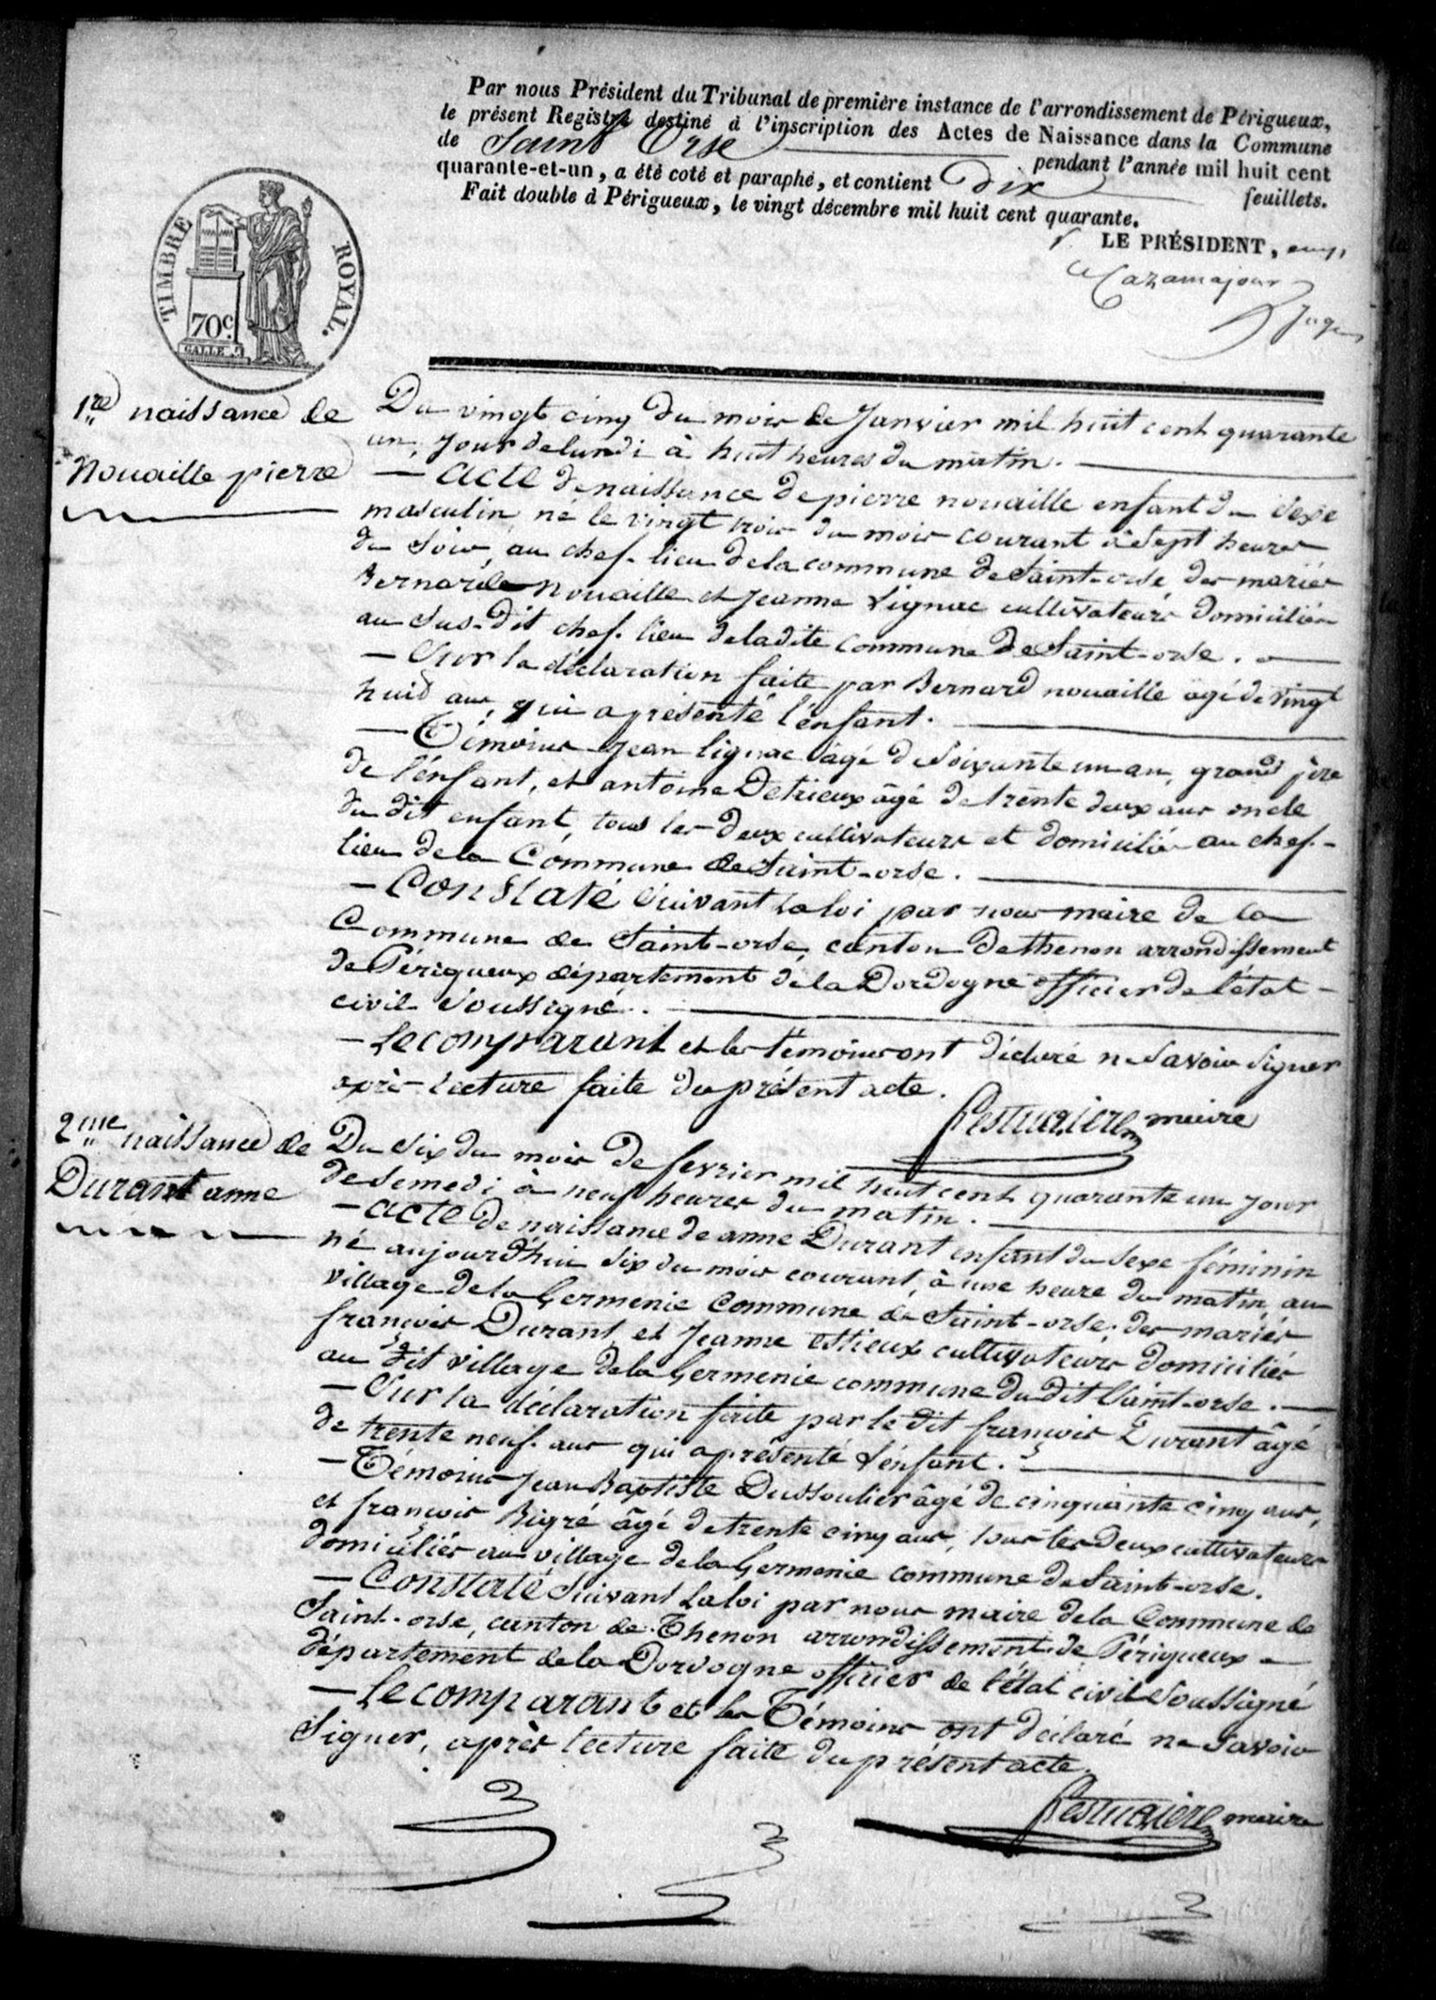 Par nous Président du Tribunal de première instance de l'arrondissement de Périgueux,
le présent Registre destiné à l'inscription des Actes de Naissance dans la Commune
de Saint Orse pendant l'année mil huit cent
quarante-et-un, a été coté et paraphé, et contient Dix feuillets.
Fait double à Périgueux, le vingt décembre mil huit cent quarante.
LE PRÉSIDENT,
Cazamajour
Juge
TIMBRE ROYAL.
70c.
GALLE
1re naissance de
Nouaille pierre
Du vingt cinq du mois de Janvier mil huit cent quarante
un, Jour de lundi à huit heures du matin.
— Acte de naissance de pierre nouaille enfant du Sexe
masculin né le vingt trois du mois courant à Sept heures
du Soir, au chef-lieu de la commune de Saint-orse des mariés
Bernard Nouaille et Jeanne Lignac cultivateurs domiciliés
au Sus-dit chef-lieu de ladite commune de Saint-orse.
— Sur la déclaration faite par Bernard nouaille âgé de vingt
huid ans, qui a présenté l'enfant.
— Témoins Jean lignac âgé de Soixante un an, grand père
de l'énfant, et antoine Detrieux âgé de trente deux ans oncle
du dit enfant, tous les deux cultivateurs et domiciliés au chef-
lieu de la Commune de Saint-orse.
— Constaté Suivant la loi par nous maire de la
Commune de Saint-orse, canton de thenon arrondissement
de Périgueux département de la Dordogne officier de l'état
civil Soussigné.
— Le comparant et les témoins ont déclaré ne Savoir Signer
après lecture faite du présent acte.
maire
2me naissance de
Durant anne
Du Six du mois de fevrier mil huit cent quarante un jour
de Semedi à neuf heures du matin.
— Acte de naissance de anne Durant enfant du Sexe féminin
né aujourd'hui Six du mois courant, à une heure du matin, au
village de la Germenie commune de Saint-orse, des mariés
françois Durant et Jeanne Estieux cultivateurs domiciliés
au dit village de la Germenie commune du dit Saint-orse.
— Sur la déclaration faite par le dit françois Durant âgé
de trente neuf ans qui a présenté l'énfant.
— Témoins Jean Baptiste Dussoulier âgé de cinquante cinq ans,
et françois Bigré âgé de trente cinq ans, tous les deux cultivateurs
domiciliés au village de la Germenie commune de Saint-orse.
— Constaté Suivant la loi par nous maire de la Commune de
Saint-orse, canton de Thenon arrondissement de Périgueux
département de la Dordogne officier de l'état civil Soussigné
— Le comparant et les Témoins ont déclaré ne Savoir
Signer, après lecture faite du présent acte.
maire